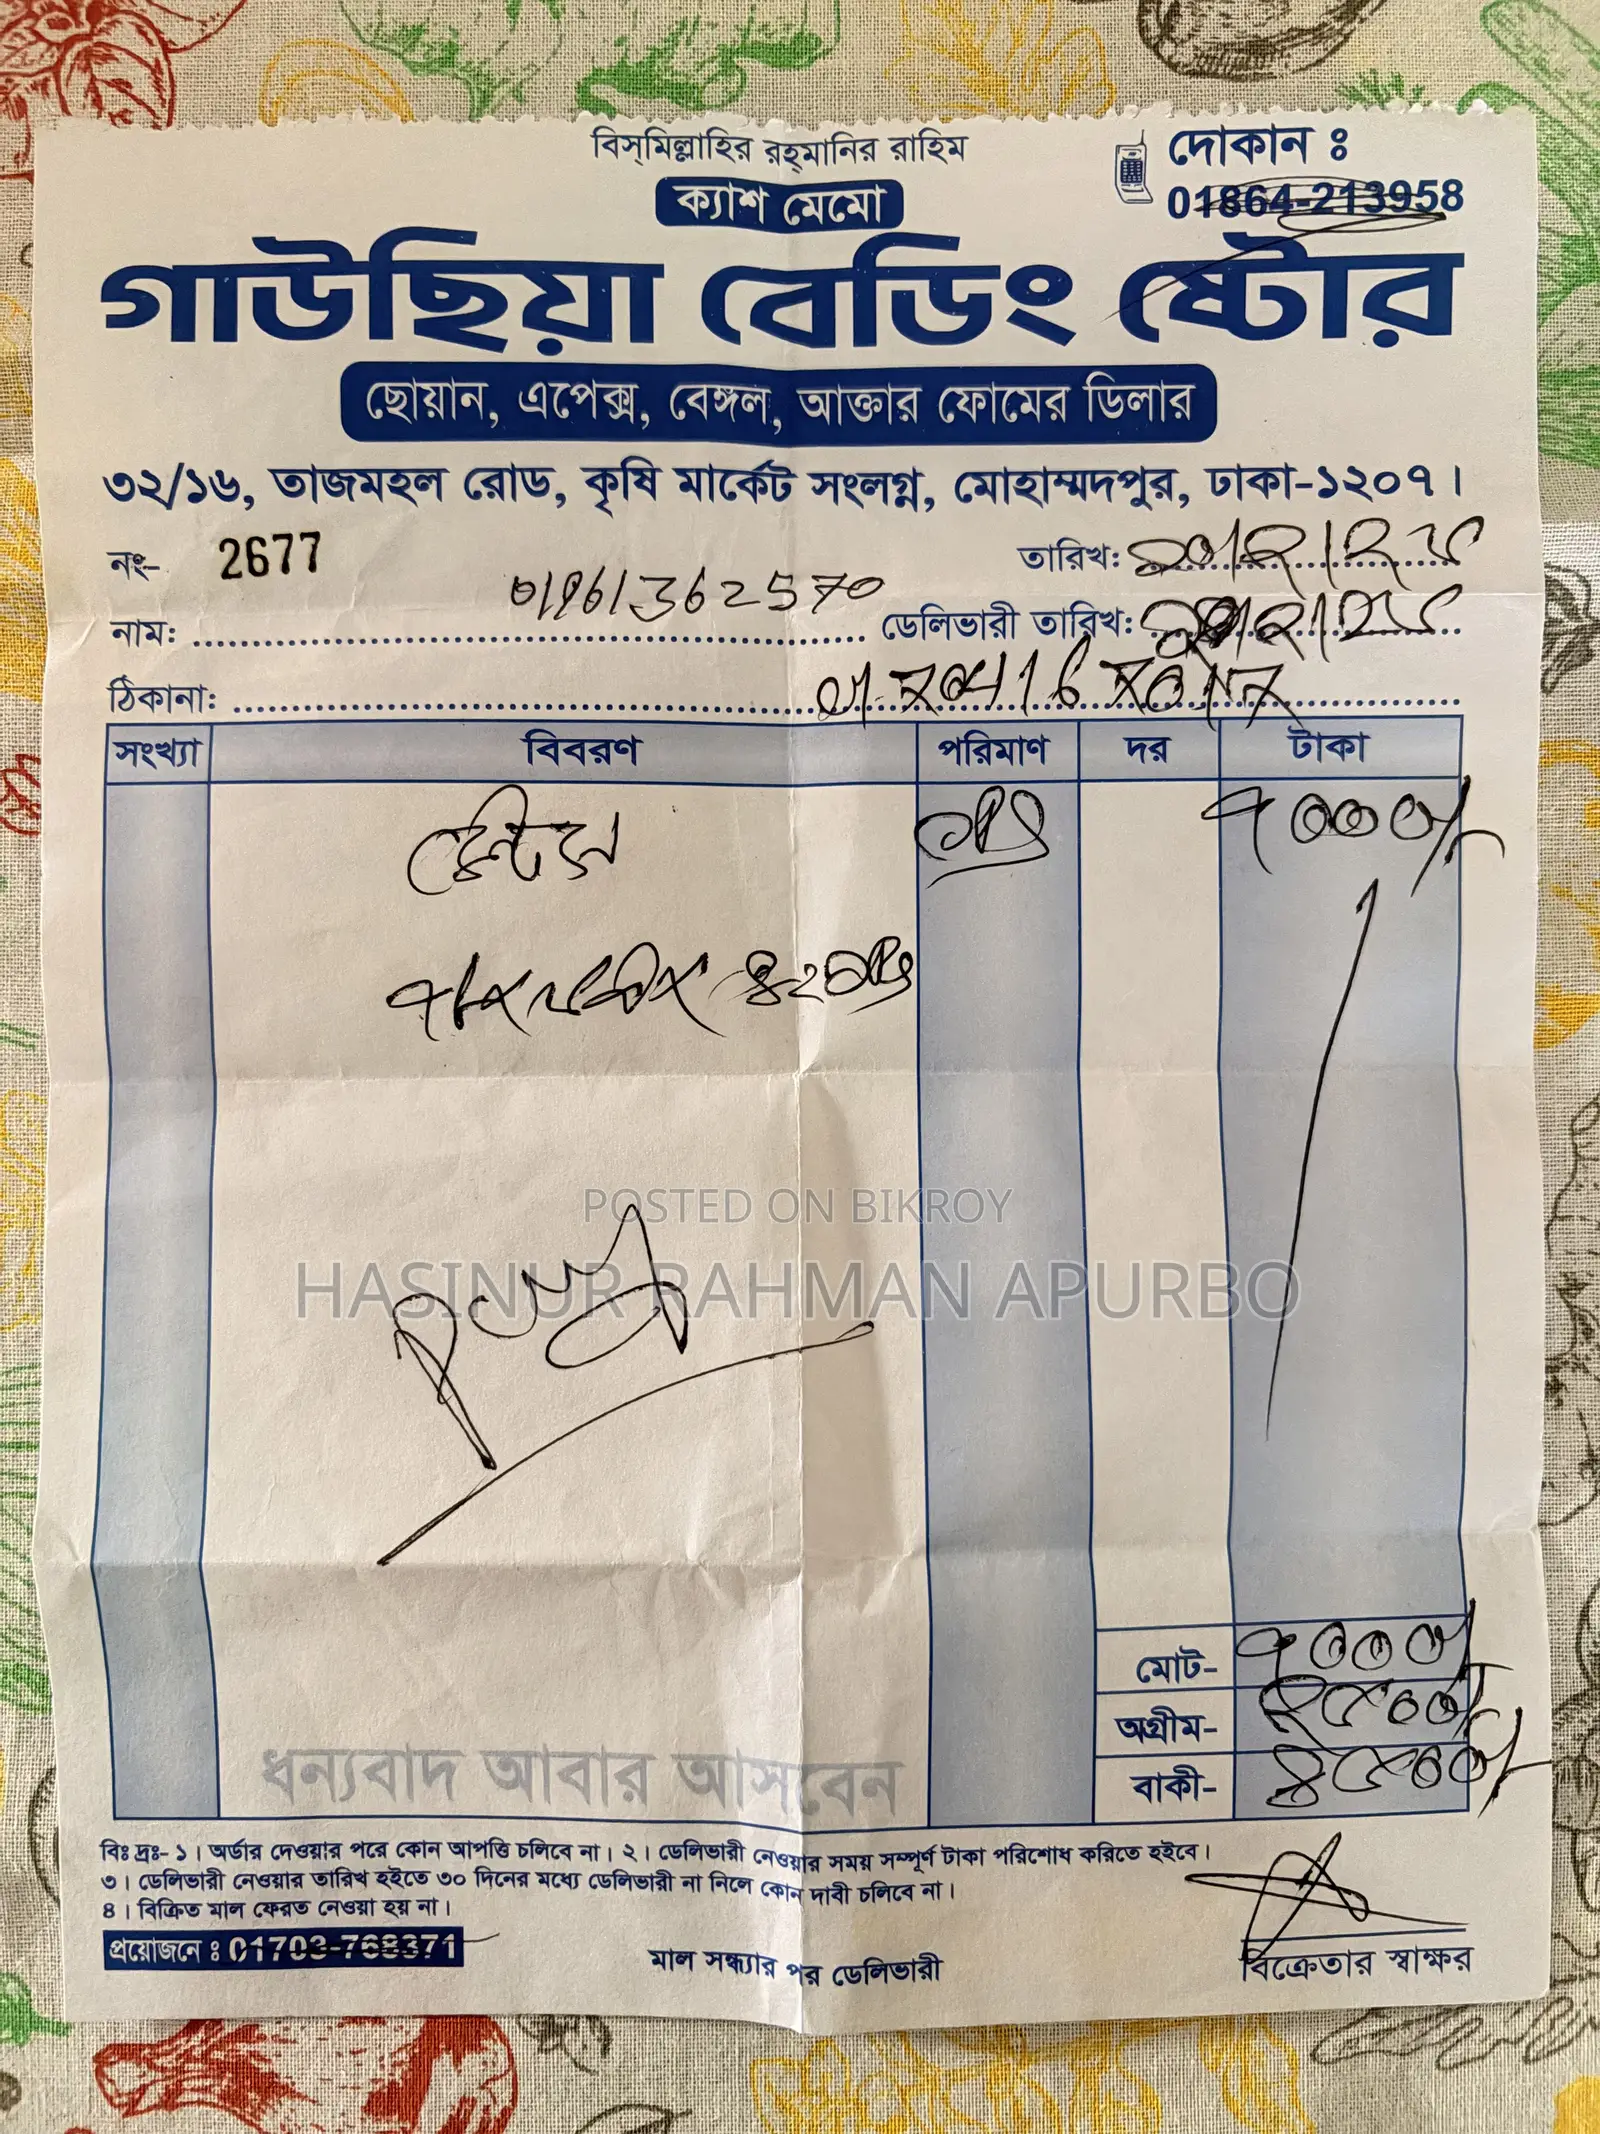 বিস্‌মিল্লাহির রহ্‌মানির রাহিম
ক্যাশ মেমো
দোকান ঃ
01864-213958
গাউছিয়া বেডিং ষ্টোর
ছোয়ান, এপেক্স, বেঙ্গল, আক্তার ফোমের ডিলার
৩২/১৬, তাজমহল রোড, কৃষি মার্কেট সংলগ্ন, মোহাম্মদপুর, ঢাকা-১২০৭।
নং- 2677
তারিখ:
01961362570
নাম: ডেলিভারী তারিখ:
ঠিকানা:
সংখ্যা বিবরণ পরিমাণ দর টাকা
৭০০০/-
POSTED ON BIKROY
HASINUR RAHMAN APURBO
মোট- ৭০০০/-
অগ্রীম- ২৫০০/-
বাকী- ৪৫০০/-
ধন্যবাদ আবার আসবেন
বিঃ দ্রঃ- ১। অর্ডার দেওয়ার পরে কোন আপত্তি চলিবে না। ২। ডেলিভারী নেওয়ার সময় সম্পূর্ণ টাকা পরিশোধ করিতে হইবে।
৩। ডেলিভারী নেওয়ার তারিখ হইতে ৩০ দিনের মধ্যে ডেলিভারী না নিলে কোন দাবী চলিবে না।
৪। বিক্রিত মাল ফেরত নেওয়া হয় না।
প্রয়োজনে ঃ 01703-768371
মাল সন্ধ্যার পর ডেলিভারী
বিক্রেতার স্বাক্ষর